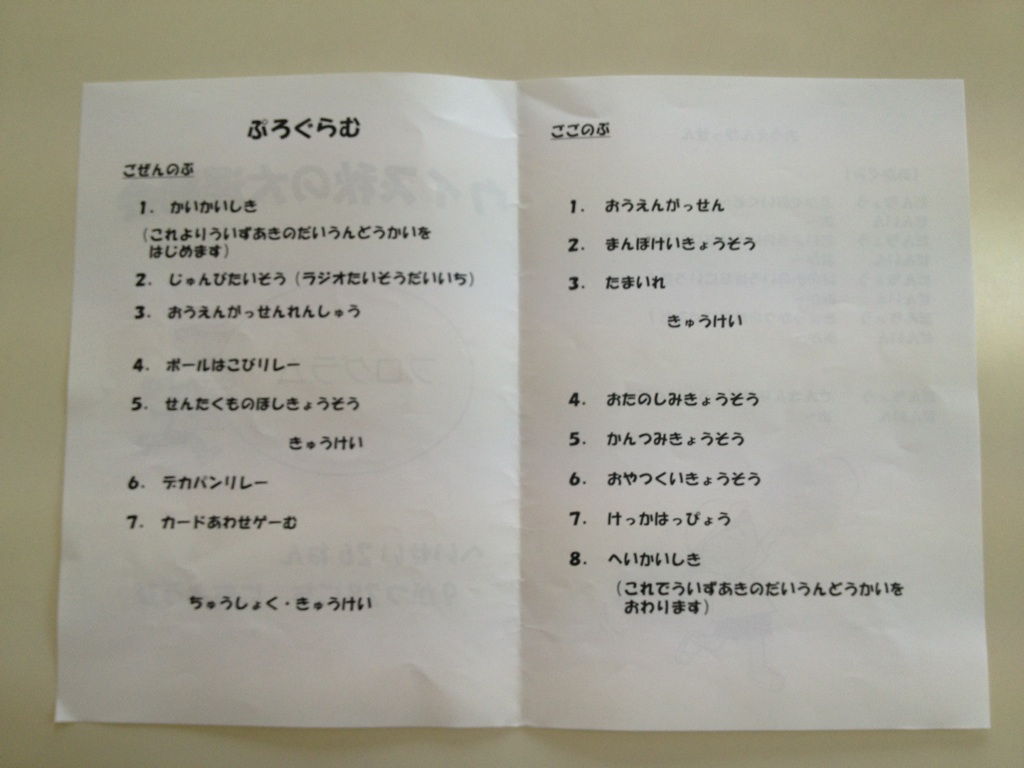 ぷろぐらむ
ごぜんのぶ
1. かいかいしき
(これよりういずあきのだいうんどうかいを
はじめます)
2. じゅんびたいそう (ラジオたいそうだいいち)
3. おうえんがっせんれんしゅう
4. ボールはこびリレー
5. せんたくものほしきょうそう
きゅうけい
6. デカパンリレー
7. カードあわせゲーむ
ちゅうしょく・きゅうけい
ごごのぶ
1. おうえんがっせん
2. まんぽけいきょうそう
3. たまいれ
きゅうけい
4. おたのしみきょうそう
5. かんつみきょうそう
6. おやつくいきょうそう
7. けっかはっぴょう
8. へいかいしき
(これでういずあきのだいうんどうかいを
おわります)